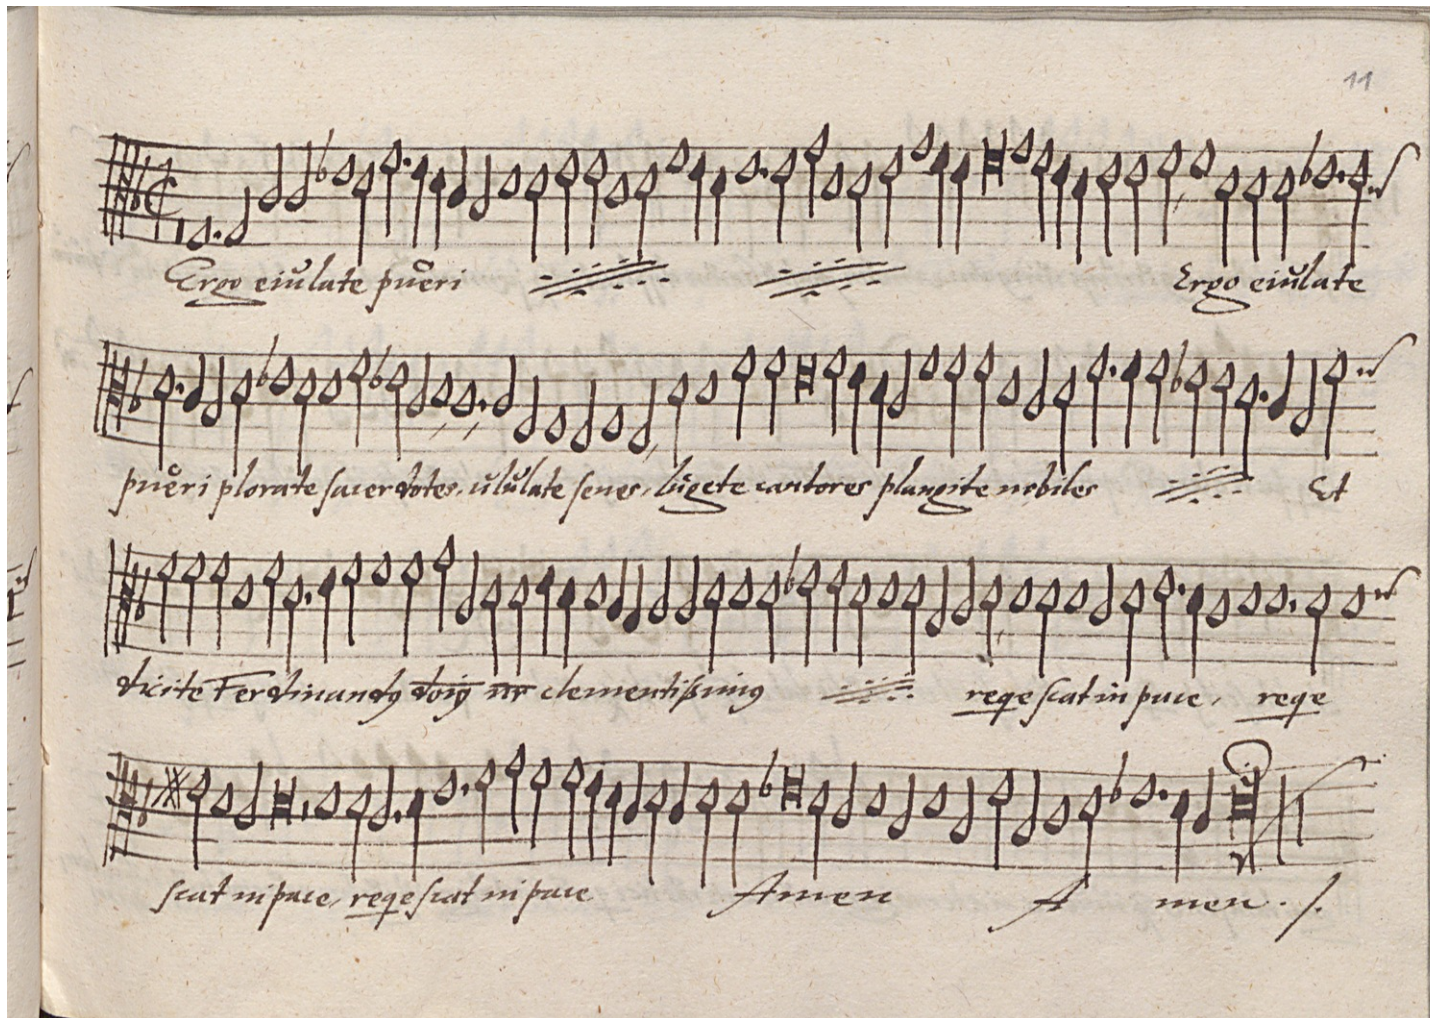 11
Ergo eiŭlate pŭeri Ergo eiŭlate
pŭeri plorate sacerdotes, ŭlŭlate senes, lŭgete cantores plangite nobiles Et
dicite Ferdinandꝰ doīꝰ nr̄ clementißimꝰ reqescat in pace, reqe
scat in pace, reqescat in pace Amen A men ./.